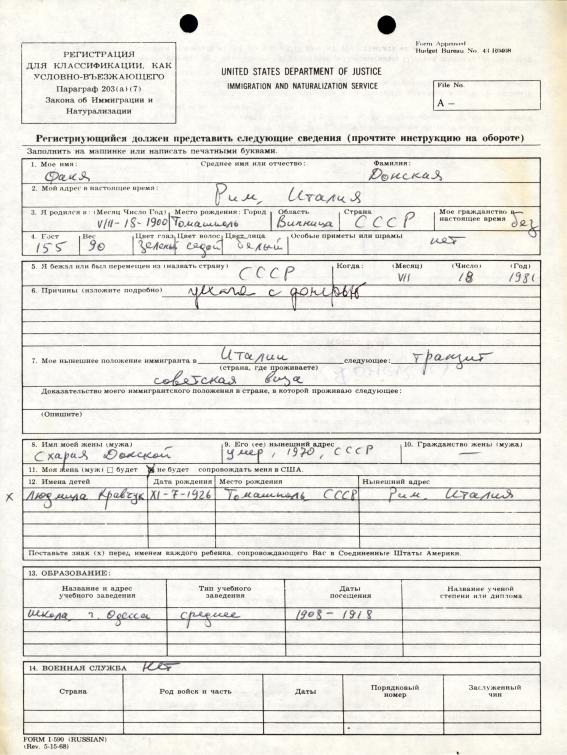 Form Approved
Budget Bureau No. 43-R0408
РЕГИСТРАЦИЯ
ДЛЯ КЛАССИФИКАЦИИ, КАК
УСЛОВНО-ВЪЕЗЖАЮЩЕГО
Параграф 203(а)(7)
Закона об Иммиграции и
Натурализации
UNITED STATES DEPARTMENT OF JUSTICE
IMMIGRATION AND NATURALIZATION SERVICE
File No.
A –
Регистрнующийся должен представить следующие сведения (прочтите инструкцию на обороте)
Заполнить на машинке или написать печатными буквами.
1. Мое имя: Среднее имя или отчество: Фамилия:
Фаня Донская
2. Мой адрес в настоящее время:
Рим, Италия
3. Я родился в: (Месяц Число Год) Место рождения: Город Область Страна Мое гражданство в настоящее время
VIII-18-1900 Томашполь Винница СССР без
4. Рост Вес Цвет глаз Цвет волос Цвет лица Особые приметы или шрамы
155 90 Зеленый седой белый нет
5. Я бежал или был перемещен из (назвать страну) СССР Когда: (Месяц) (Число) (Год)
VII 18 1981
6. Причины (изложите подробно) уехала с дочерью
7. Мое нынешнее положение иммигранта в Италии следующее: транзит
(страна, где проживаете)
советская виза
Доказательство моего иммигрантского положения в стране, в которой проживаю следующее:
(Опишите)
8. Имя моей жены (мужа) 9. Его (ее) нынешний адрес 10. Гражданство жены (мужа)
Схария Донской умер, 1970, СССР —
11. Моя жена (муж) будет не будет сопровождать меня в США.
12. Имена детей Дата рождения Место рождения Нынешний адрес
x Людмила Кравчук XI-7-1926 Томашполь СССР Рим, Италия
Поставьте знак (x) перед именем каждого ребенка, сопровождающего Вас в Соединенные Штаты Америки.
13. ОБРАЗОВАНИЕ:
Название и адрес учебного заведения Тип учебного заведения Даты посещения Название ученой степени или диплома
школа, г. Одесса среднее 1908 – 1918
14. ВОЕННАЯ СЛУЖБА нет
Страна Род войск и часть Даты Порядковый номер Заслуженный чин
FORM I-590 (RUSSIAN)
(Rev. 5-15-68)